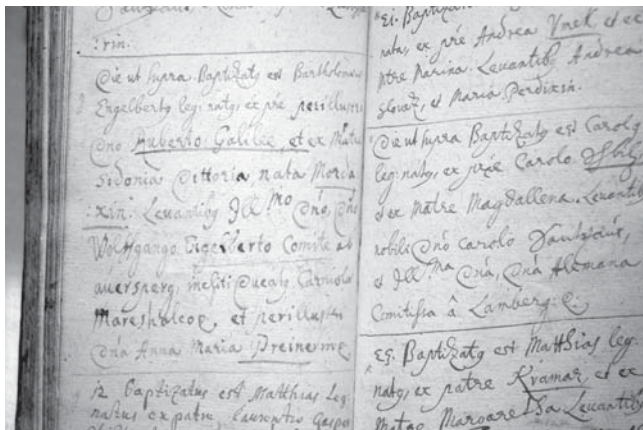 :rin:
Die ut supra Baptizatq est Bartholomeus
Engelbertq legi: natq, ex pre perillustri
Dno Ruberto Galilee, et ex Matre
Sidonia Vittoria, nata Morda
:xin: Levantibq Ill:mo Dno, Dno
Wolffgango Engelberto Comite ab
auersperg, incliti Ducatq Carniolae
Mareshalcoe, et perillustri
Dna Anna Maria Preinerine
12 Baptizatus est Matthias Leg
nattus ex patre, laurentio Gaspar
Ei. Baptizatq
natq, ex pre Andrea et ex
mtre Marina. Levantibq Andrea
et Maria Perdixin.
Die ut supra Baptizatq est Carolq
leg: natq, ex pre Carolo
et ex Matre Magdallena. Levantibq
nobili Dno Carolo
et Ill:ma Dna, Dna Altemana
Comitissa â Lamberg.
Eg. Baptizatq est Matthias leg:
natq, ex patre Kramar, et ex
Matre Margaretha Levantibq